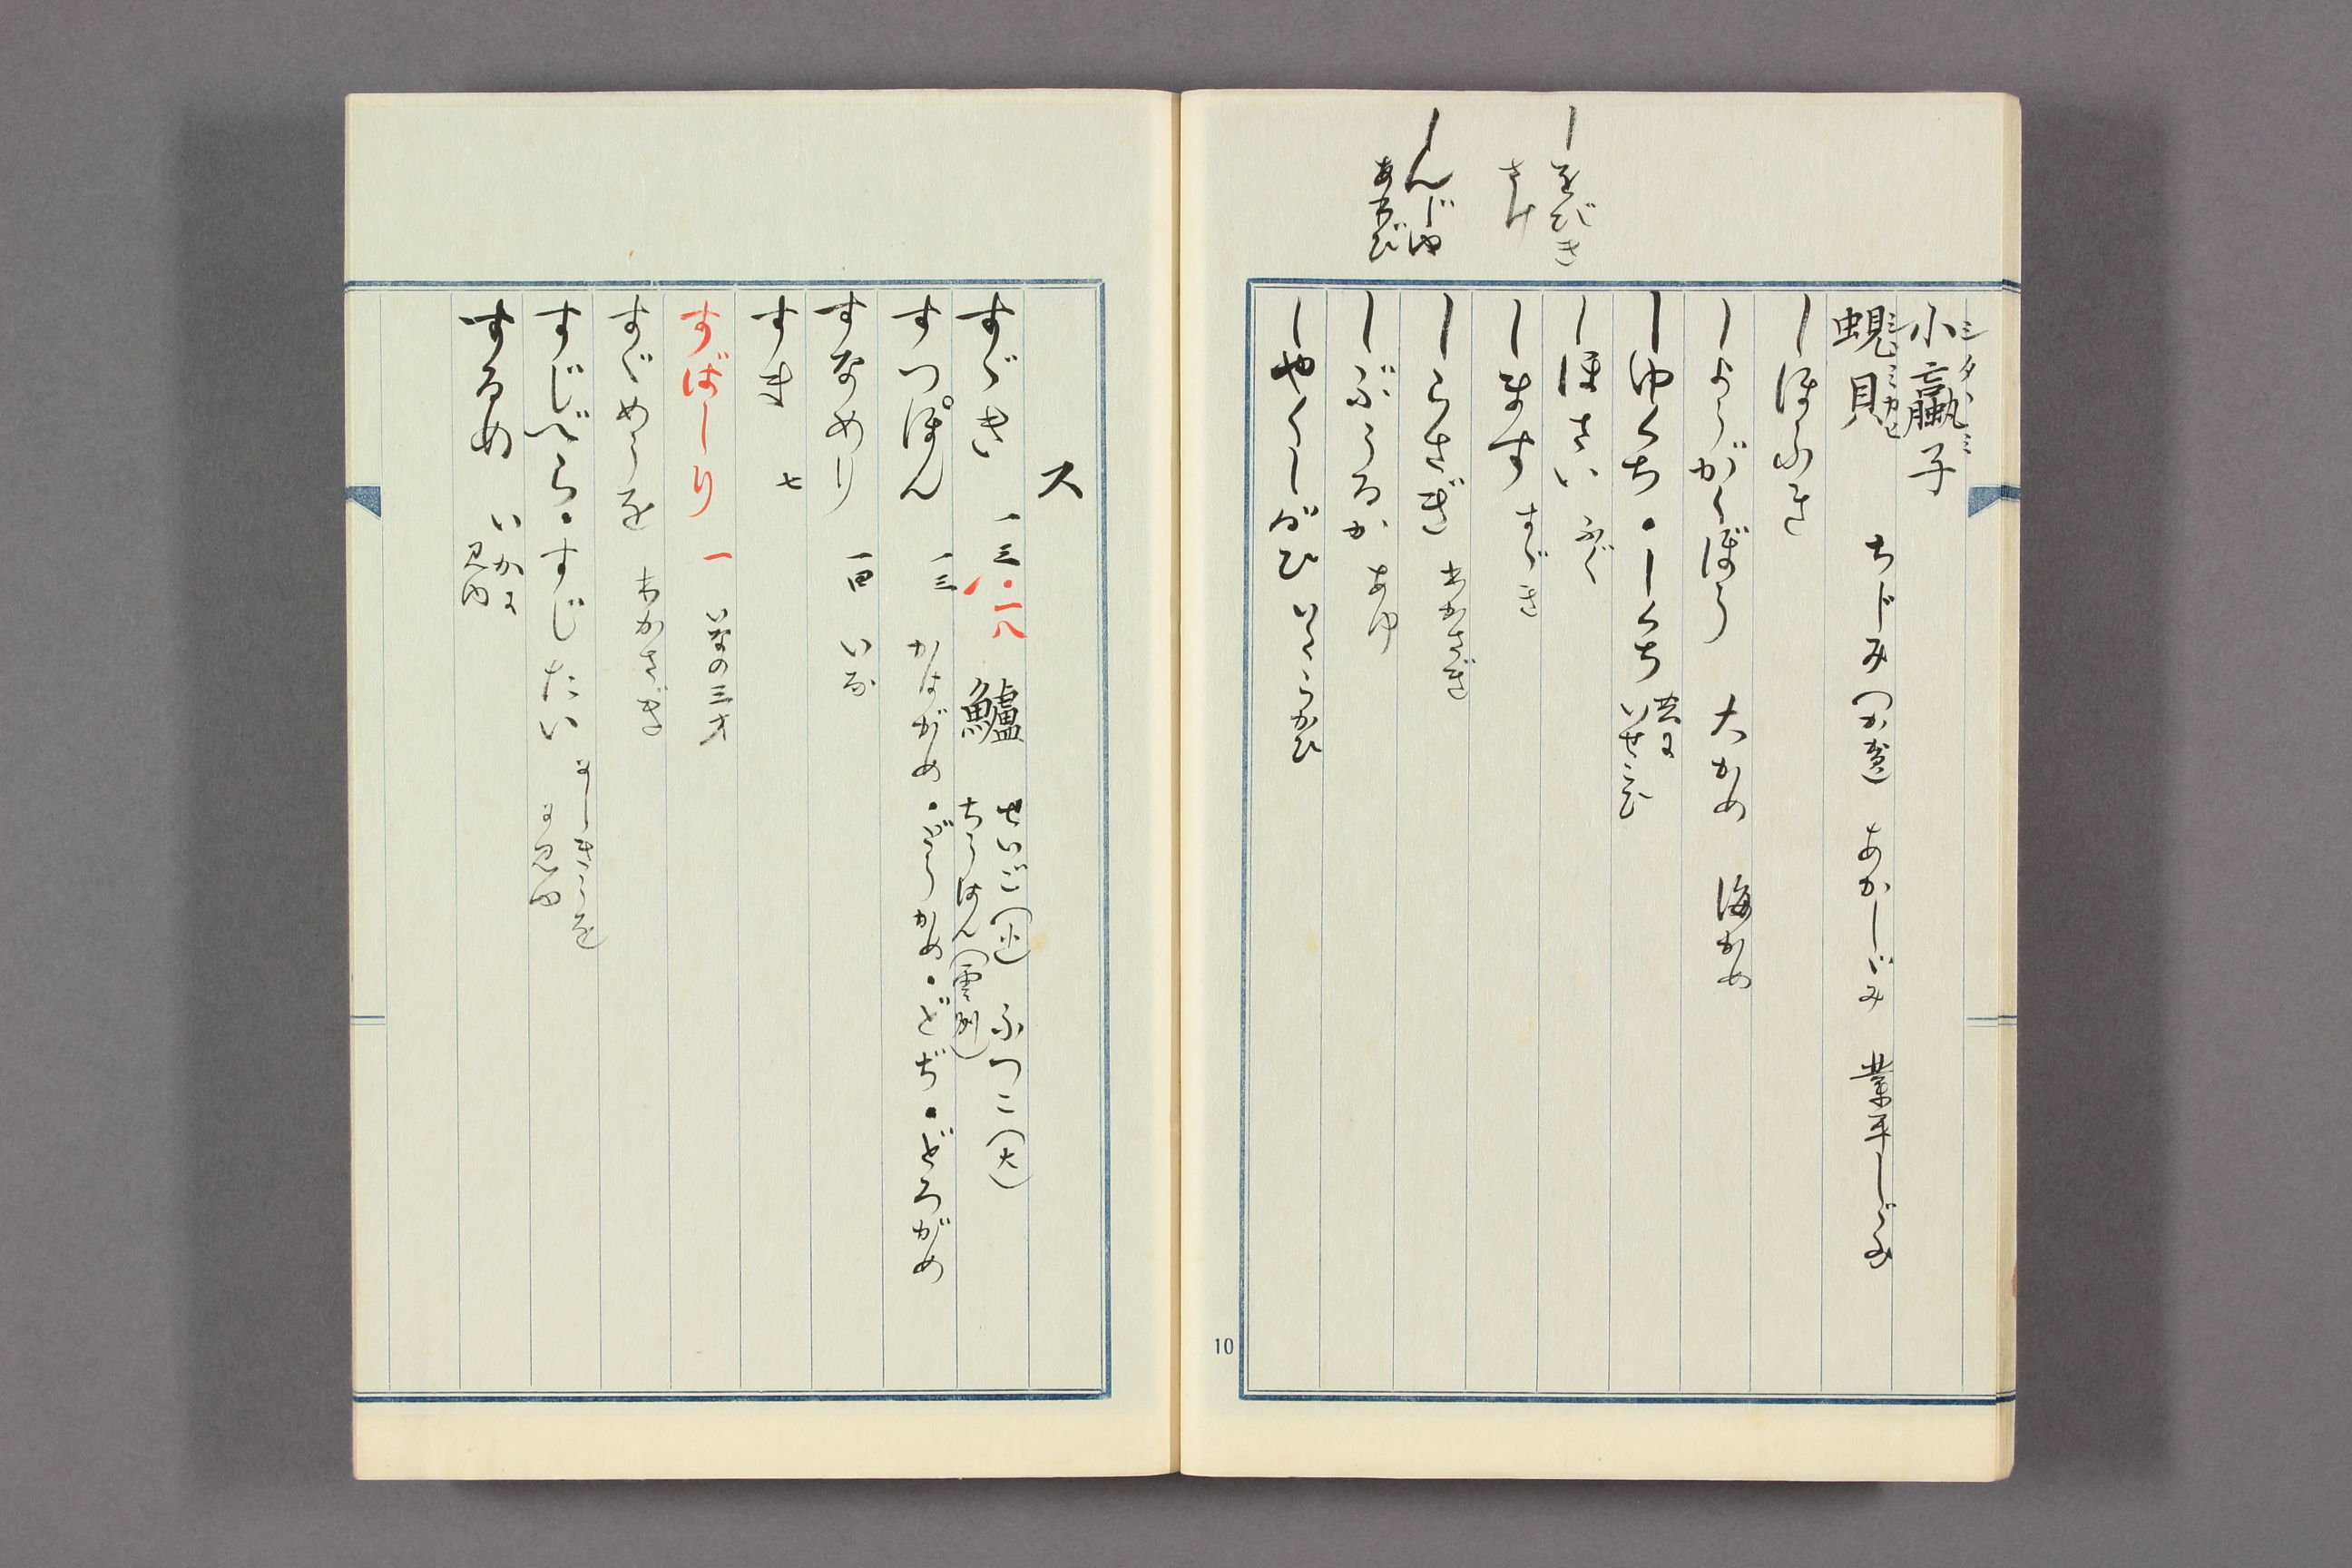 しをびき
さけ
しんじゆ
あわび
小蠃子
シタヾミ
蜆貝 ちゞみ(つか越) あかしゞみ 業平しゞみ
シヾミカヒ
しほふき
しようがくぼう 大かめ 海かめ
しゆくち・しくち 共に
いせごひ
しほさい ふぐ
します すゞき
しらさぎ わかさぎ
しぶうるか あゆ
しやくしがひ いたらがひ
10
ス
すゞき 一三・二八 鱸 せいご(小) ふつこ(大)
ちうはん(雲州)
すつぽん 一三 かはがめ・どうがめ・どぢ・どろがめ
すなめり 一四 いな
すき 七
すばしり 一 いなの三才
すゞめうを わかさぎ
すじべら・すじたい よしきりうを
ヲ見ゆ
するめ いかに
見ゆ